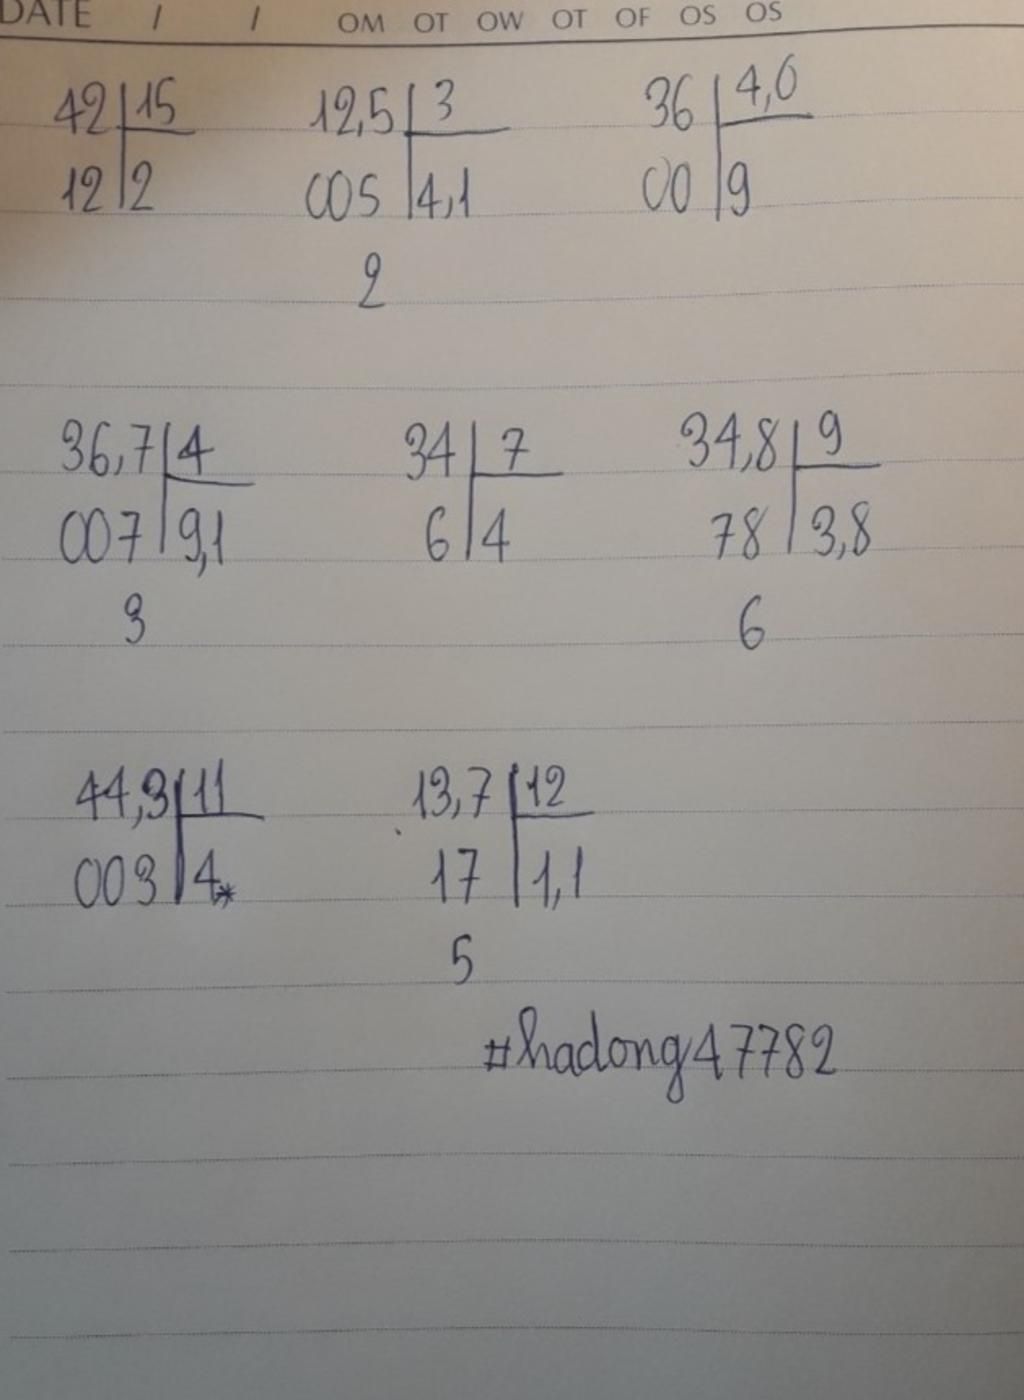 DATE / / OM OT OW OT OF OS OS
42 15 12,5 3 36 4,0
12 2 005 4,1 00 9
2
36,7 4 34 7 34,8 9
007 9,1 6 4 78 3,8
3 6
44,3 11 13,7 12
003 4* 17 1,1
5
#hadong47782